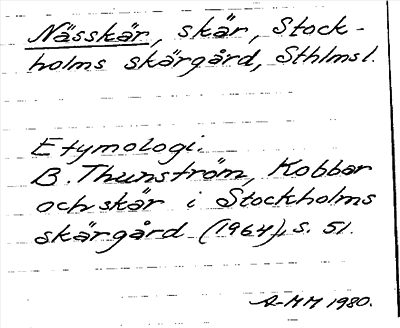 Nässkär, skär, Stock-
holms skärgård, Sthlmsl.
Etymologi.
B. Thunström, Kobbar
och skär i Stockholms
skärgård (1964), s. 51.
A-MM 1980.